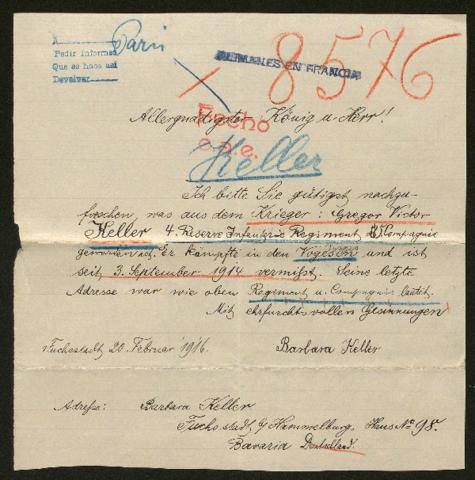 A
Pedir Informes
Que se hace así
Devolver
Paris
ALEMANES EN FRANCIA
8576
Allergnädigster König u. Herr!
Fecho
Keller
Ich bitte Sie gütigst nachzu-
forschen, was aus dem Krieger: Gregor Victor
Keller 4. Reserve Infanterie Regiment Compagnie
geworden ist. Er kämpfte in den Vogesen und ist
seit 3. September 1914 vermisst. Seine letzte
Adresse war wie oben Regiment u. Compagnie lautet.
Mit ehrfurchtsvollen Gesinnungen
Fuchsstadt, 20. Februar 1916.
Barbara Keller
Adresse: Barbara Keller
Fuchsstadt, b/ Hammelburg, Haus No 98.
Bavaria Deutschland.